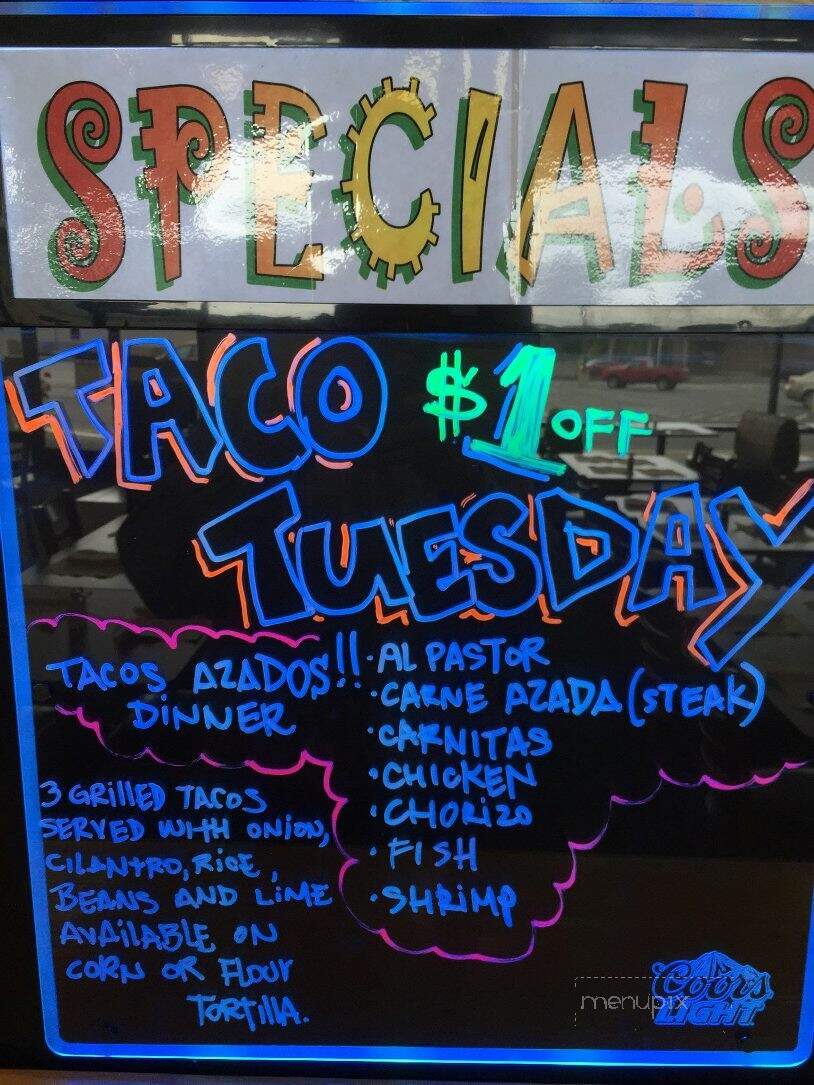 SPECIALS
TACO $1 OFF
TUESDAY
TACOS AZADOS!!
DINNER
• AL PASTOR
• CARNE AZADA (STEAK)
• CARNITAS
• CHICKEN
• CHORIZO
• FISH
• SHRIMP
3 GRILLED TACOS
SERVED WITH ONION,
CILANTRO, RICE,
BEANS AND LIME
AVAILABLE ON
CORN OR FLOUR
TORTILLA.
menupix
Coors
LIGHT